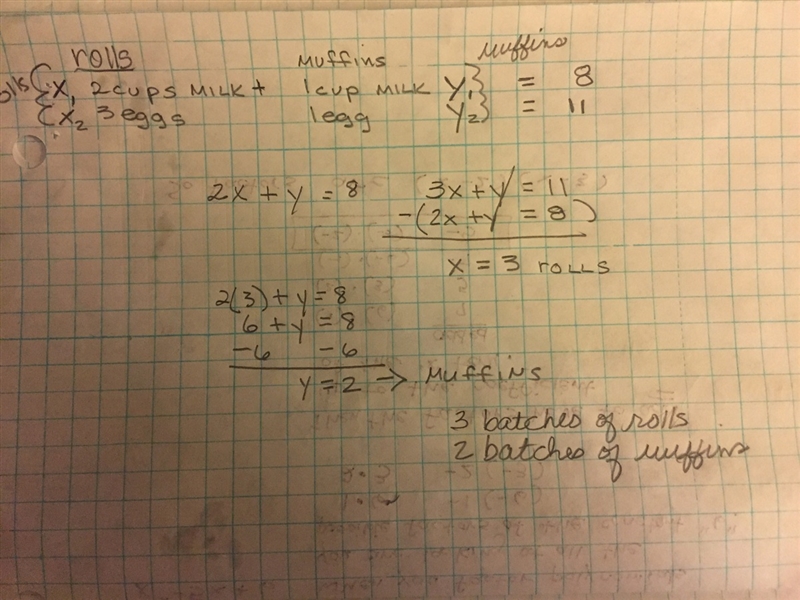 muffins
rolls muffins
x₁ 2 cups milk + 1 cup milk y₁ = 8
x₂ 3 eggs 1 egg y₂ = 11
2x + y = 8 3x + y = 11
-(2x + y = 8)
x = 3 rolls
2(3) + y = 8
6 + y = 8
-6 -6
y = 2 → muffins
3 batches of rolls
2 batches of muffins